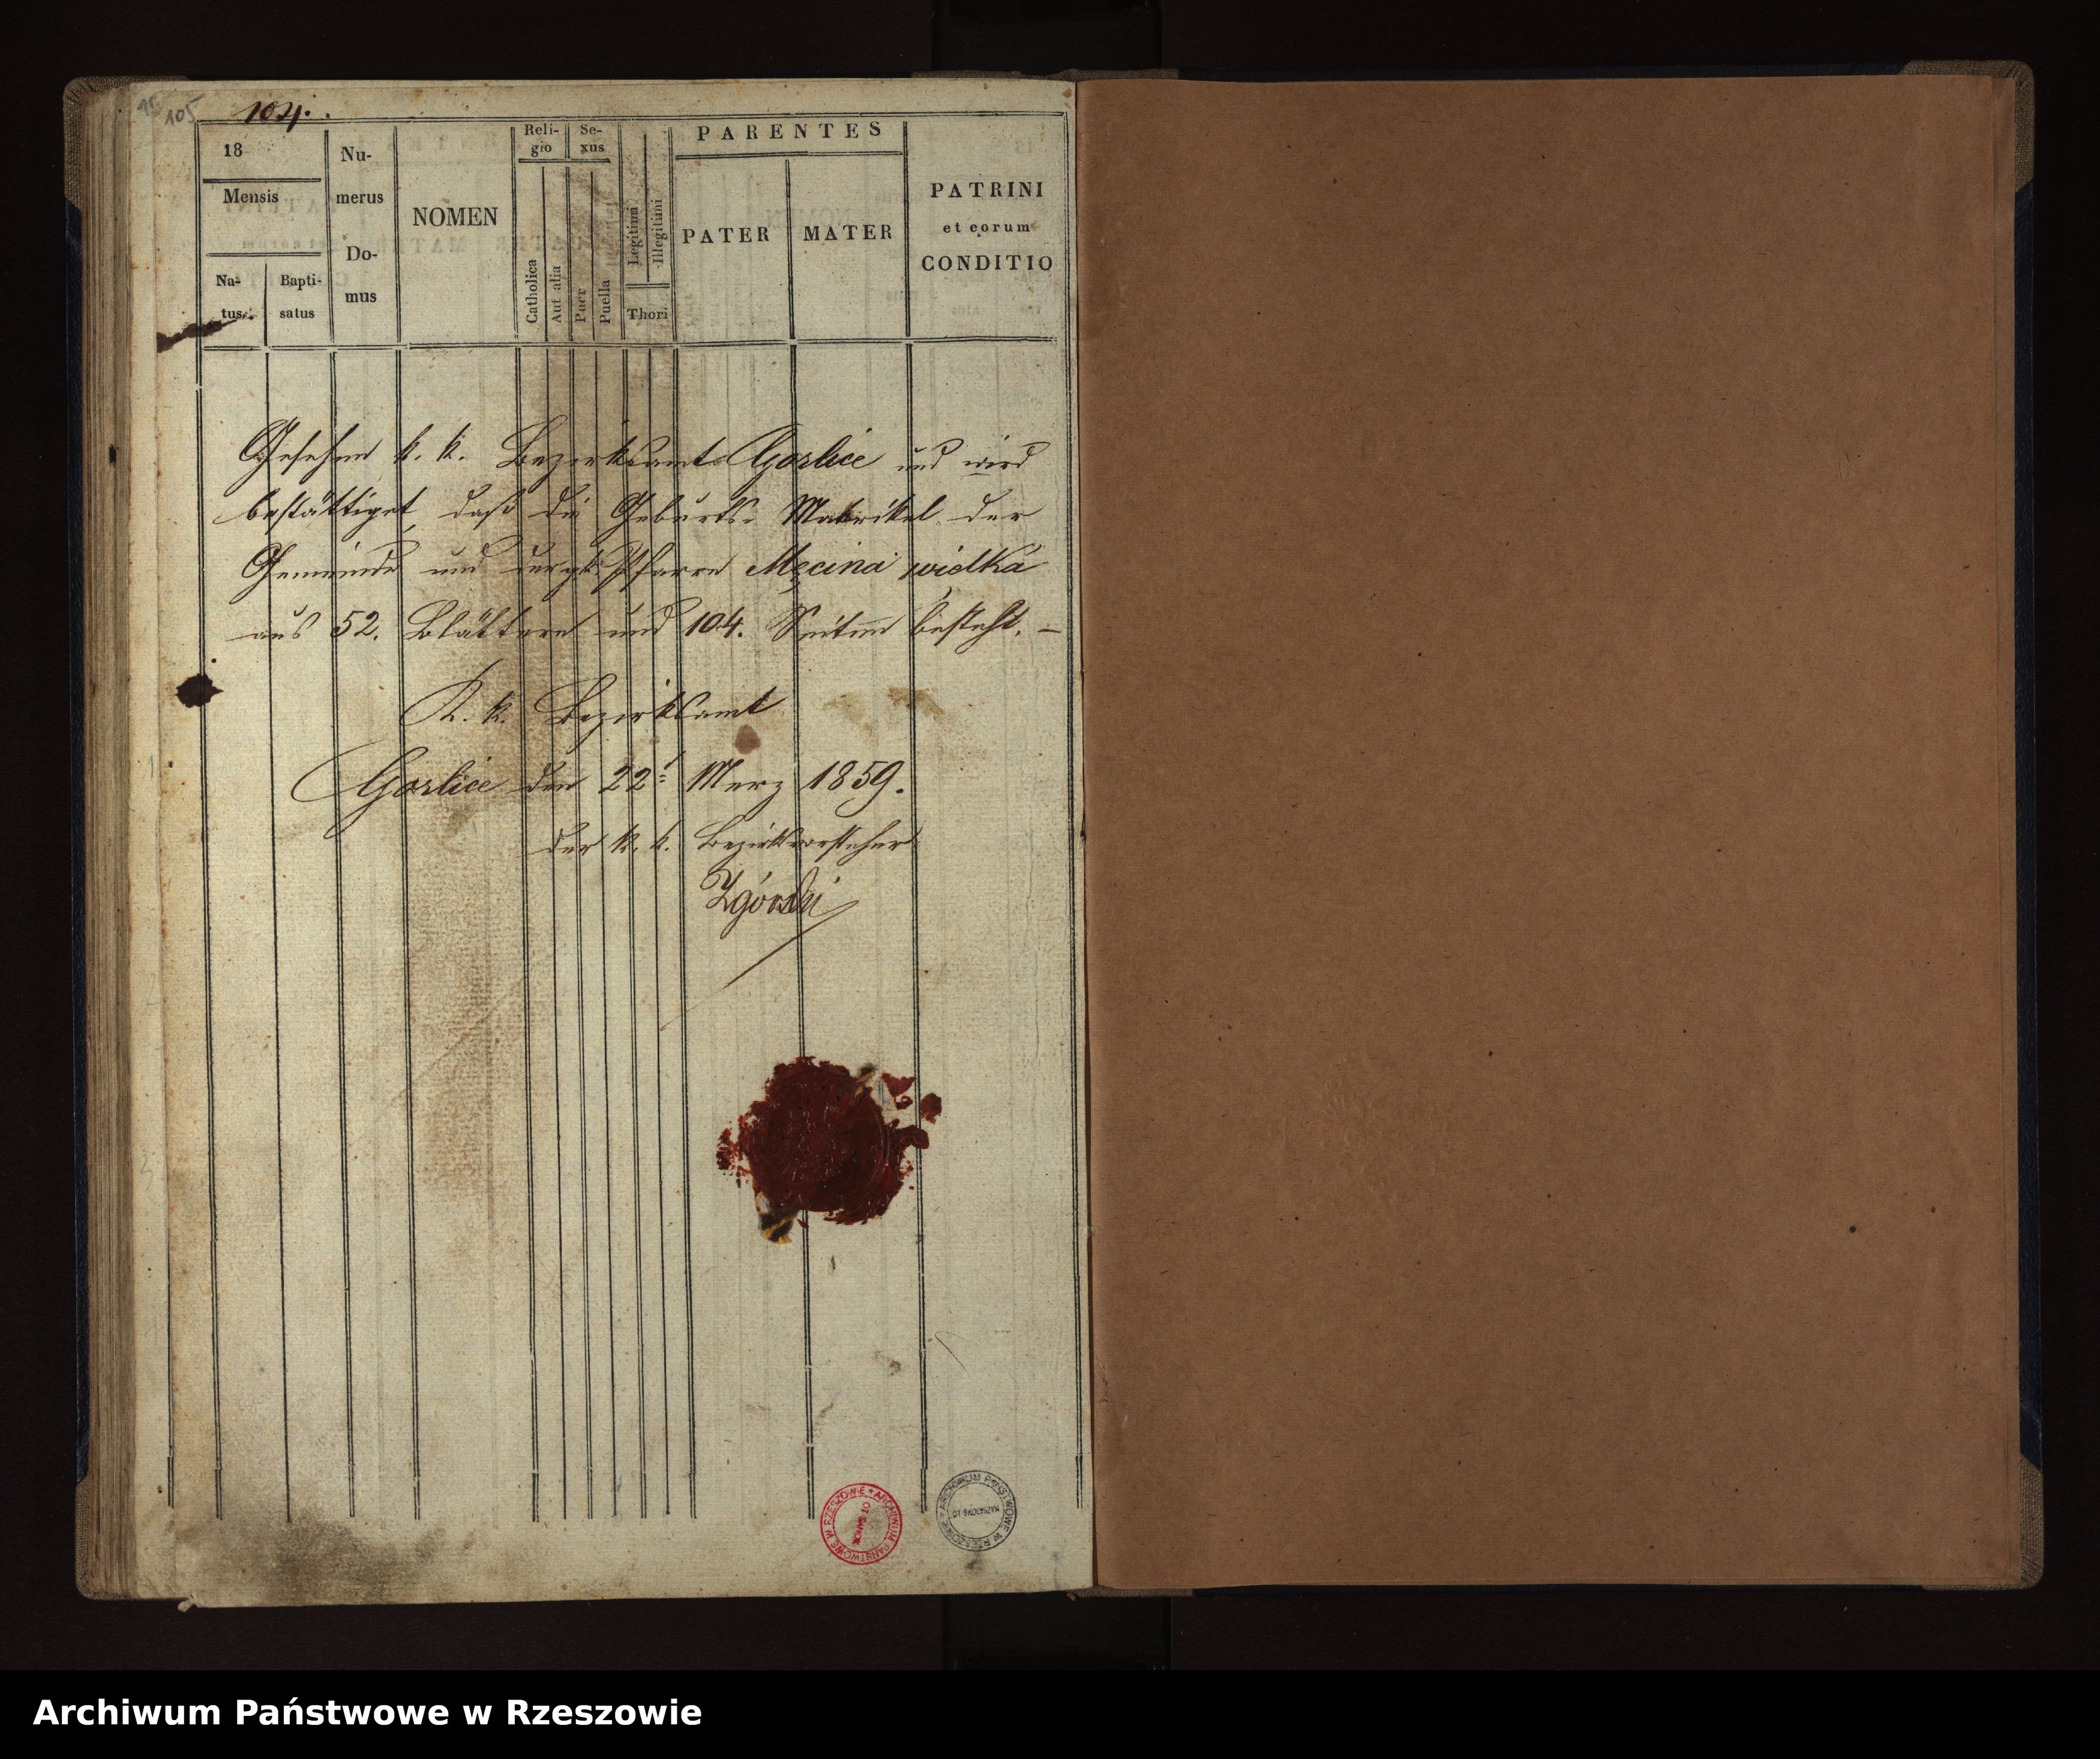 105
104.
18
Mensis
Na-
tus
Bapti-
satus
Nu-
merus
Do-
mus
NOMEN
Reli-
gio
Catholica
Aut alia
Se-
xus
Puer
Puella
Legitimi
Illegitimi
Thori
PARENTES
PATER
MATER
PATRINI
et eorum
CONDITIO
Gesehen k. k. Bezirksamt Gorlice und wird
bestättiget, daß die Geburts- Matrikel der
Gemeinde und Pfarre Męcina wielka
aus 52. Blättern und 104. Seiten besteht. –
K. k. Bezirksamt
Gorlice den 22t Merz 1859.
der k. k. Bezirksvorsteher
Zgórski
ARCHIWUM PAŃSTWOWE W RZESZOWIE
ARCHIWUM PAŃSTWOWE W RZESZOWIE
Archiwum Państwowe w Rzeszowie